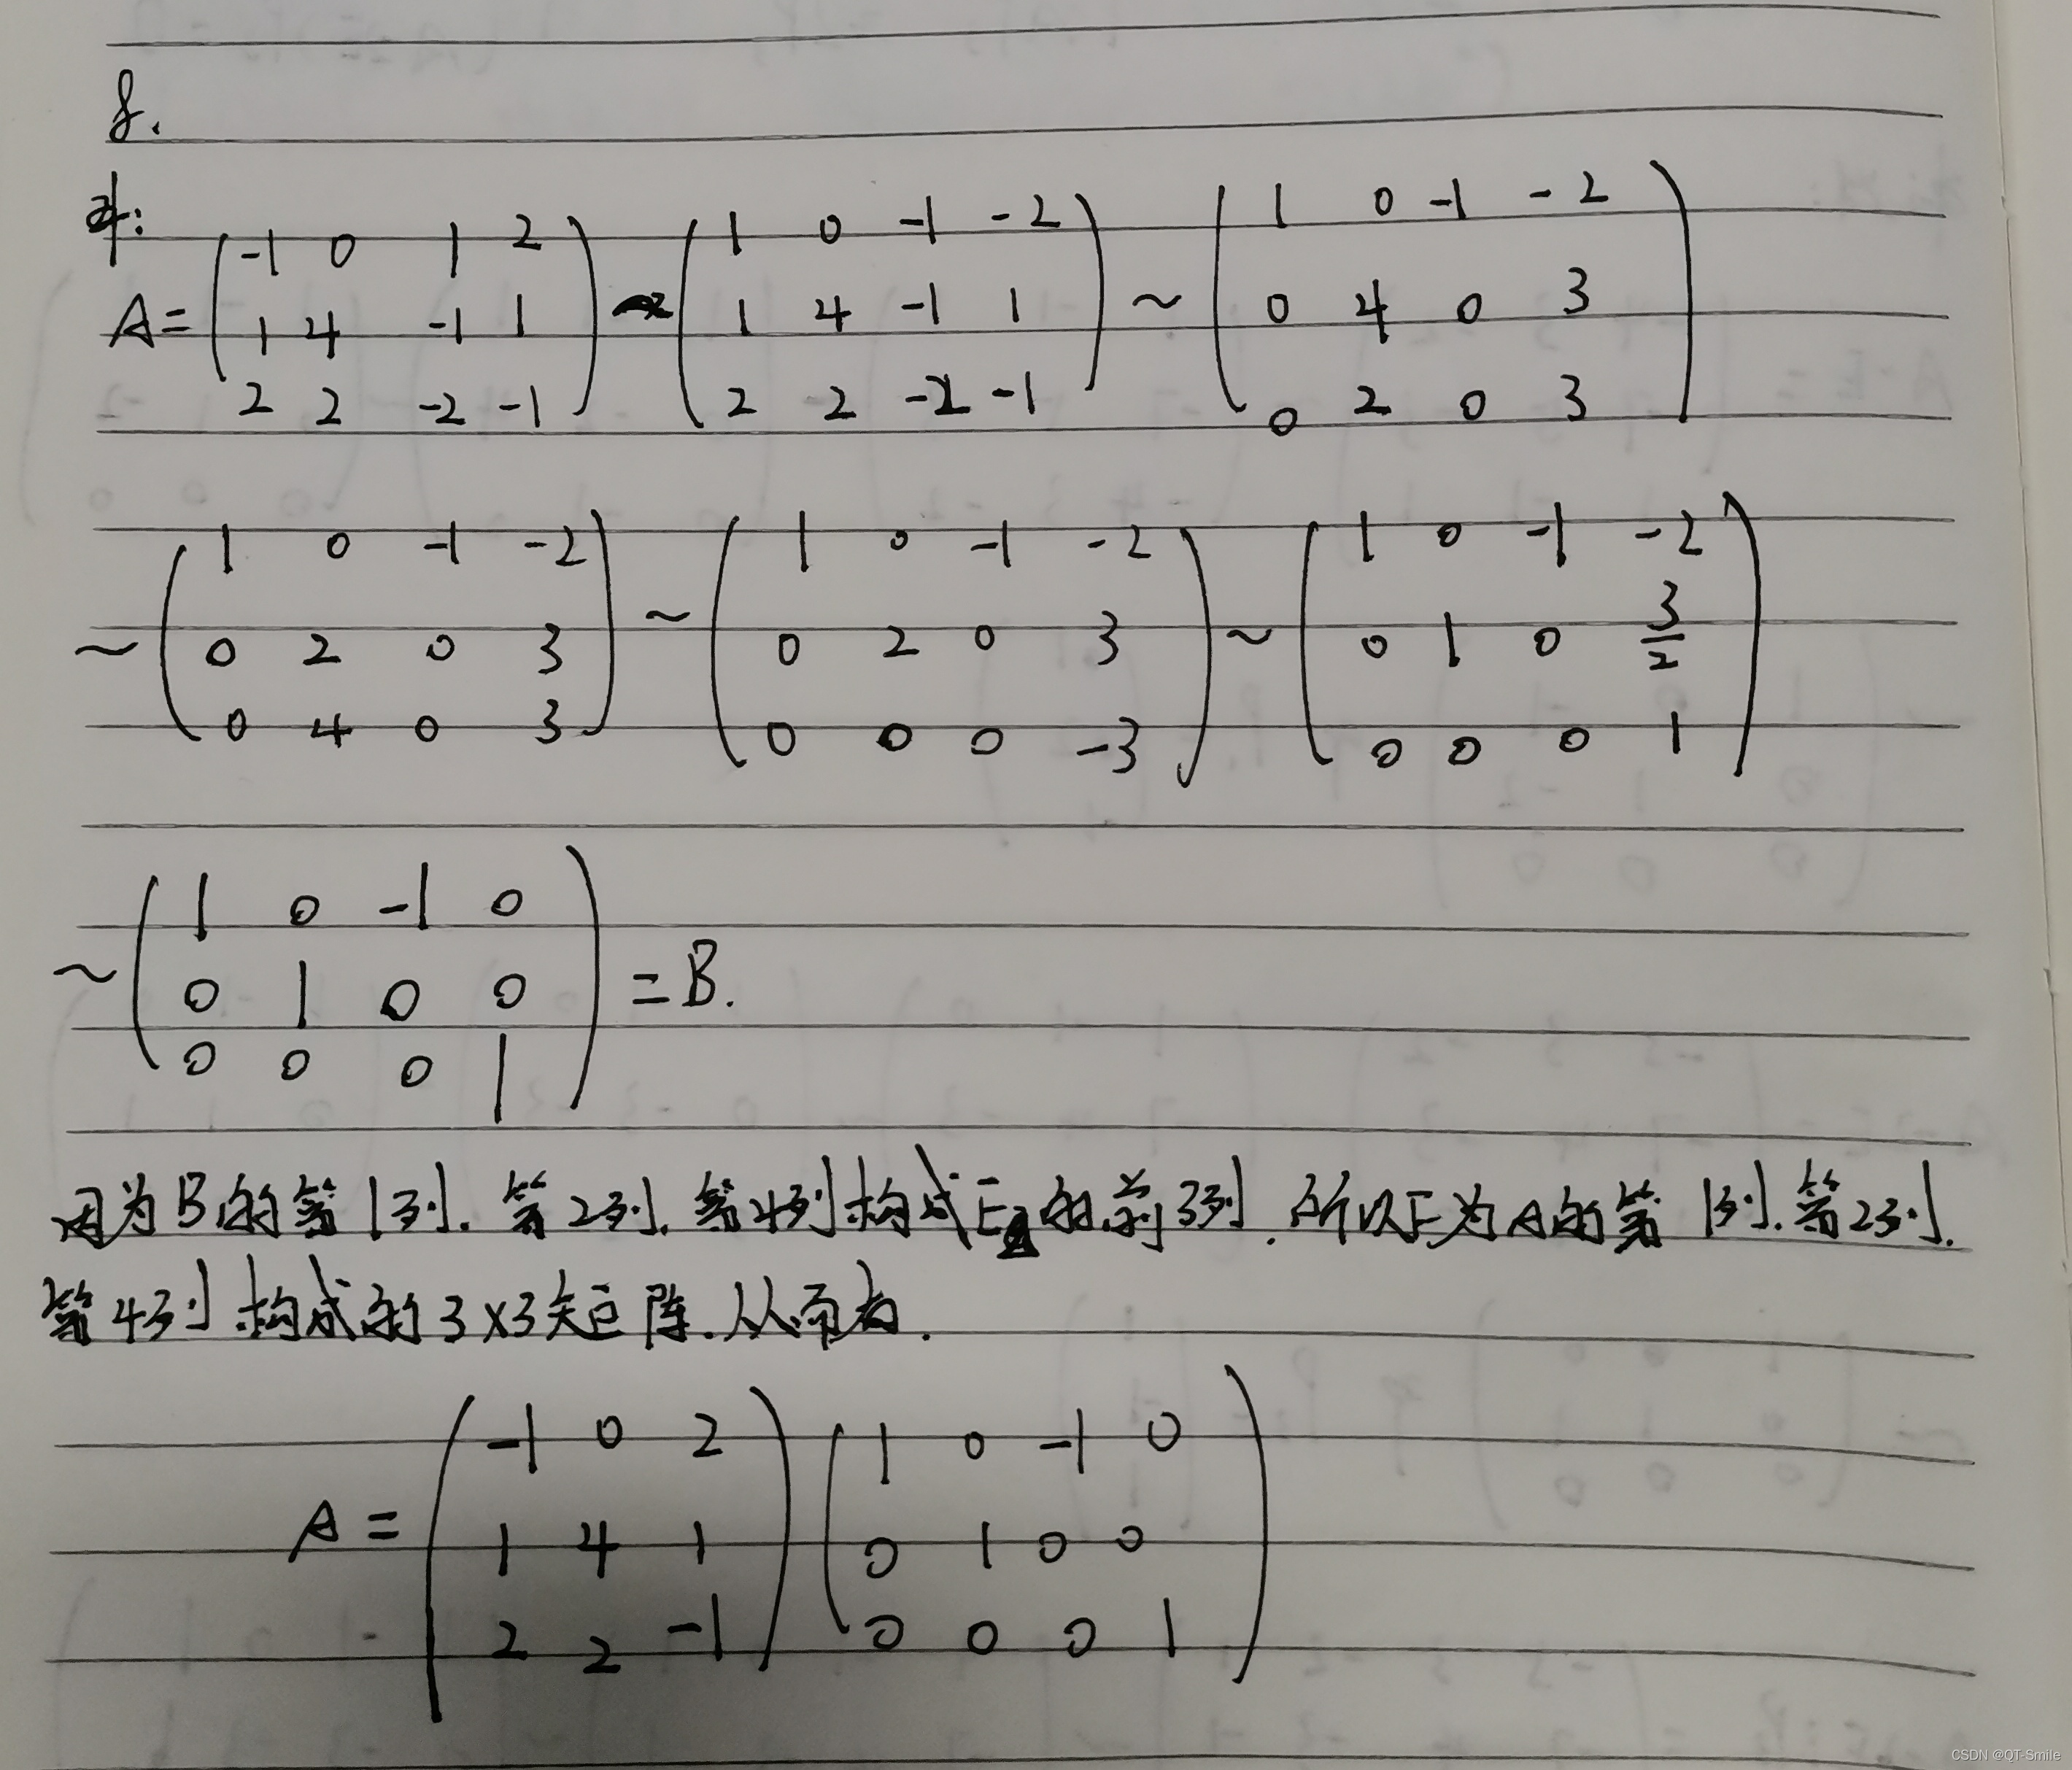 8.
A= ( -1 0 1 2 ; 1 4 -1 1 ; 2 2 -2 -1 ) ~ ( 1 0 -1 -2 ; 1 4 -1 1 ; 2 2 -2 -1 ) ~ ( 1 0 -1 -2 ; 0 4 0 3 ; 0 2 0 3 )
~ ( 1 0 -1 -2 ; 0 2 0 3 ; 0 4 0 3 ) ~ ( 1 0 -1 -2 ; 0 2 0 3 ; 0 0 0 -3 ) ~ ( 1 0 -1 -2 ; 0 1 0 3/2 ; 0 0 0 1 )
~ ( 1 0 -1 0 ; 0 1 0 0 ; 0 0 0 1 ) = B.
因为B的第1列.第2列.第4列构成E的前3列.所以F为A的第1列.第2列.
第4列构成的3×3矩阵.从而有.
A = ( -1 0 2 ; 1 4 1 ; 2 2 -1 ) ( 1 0 -1 0 ; 0 1 0 0 ; 0 0 0 1 )
CSDN @QT-Smile